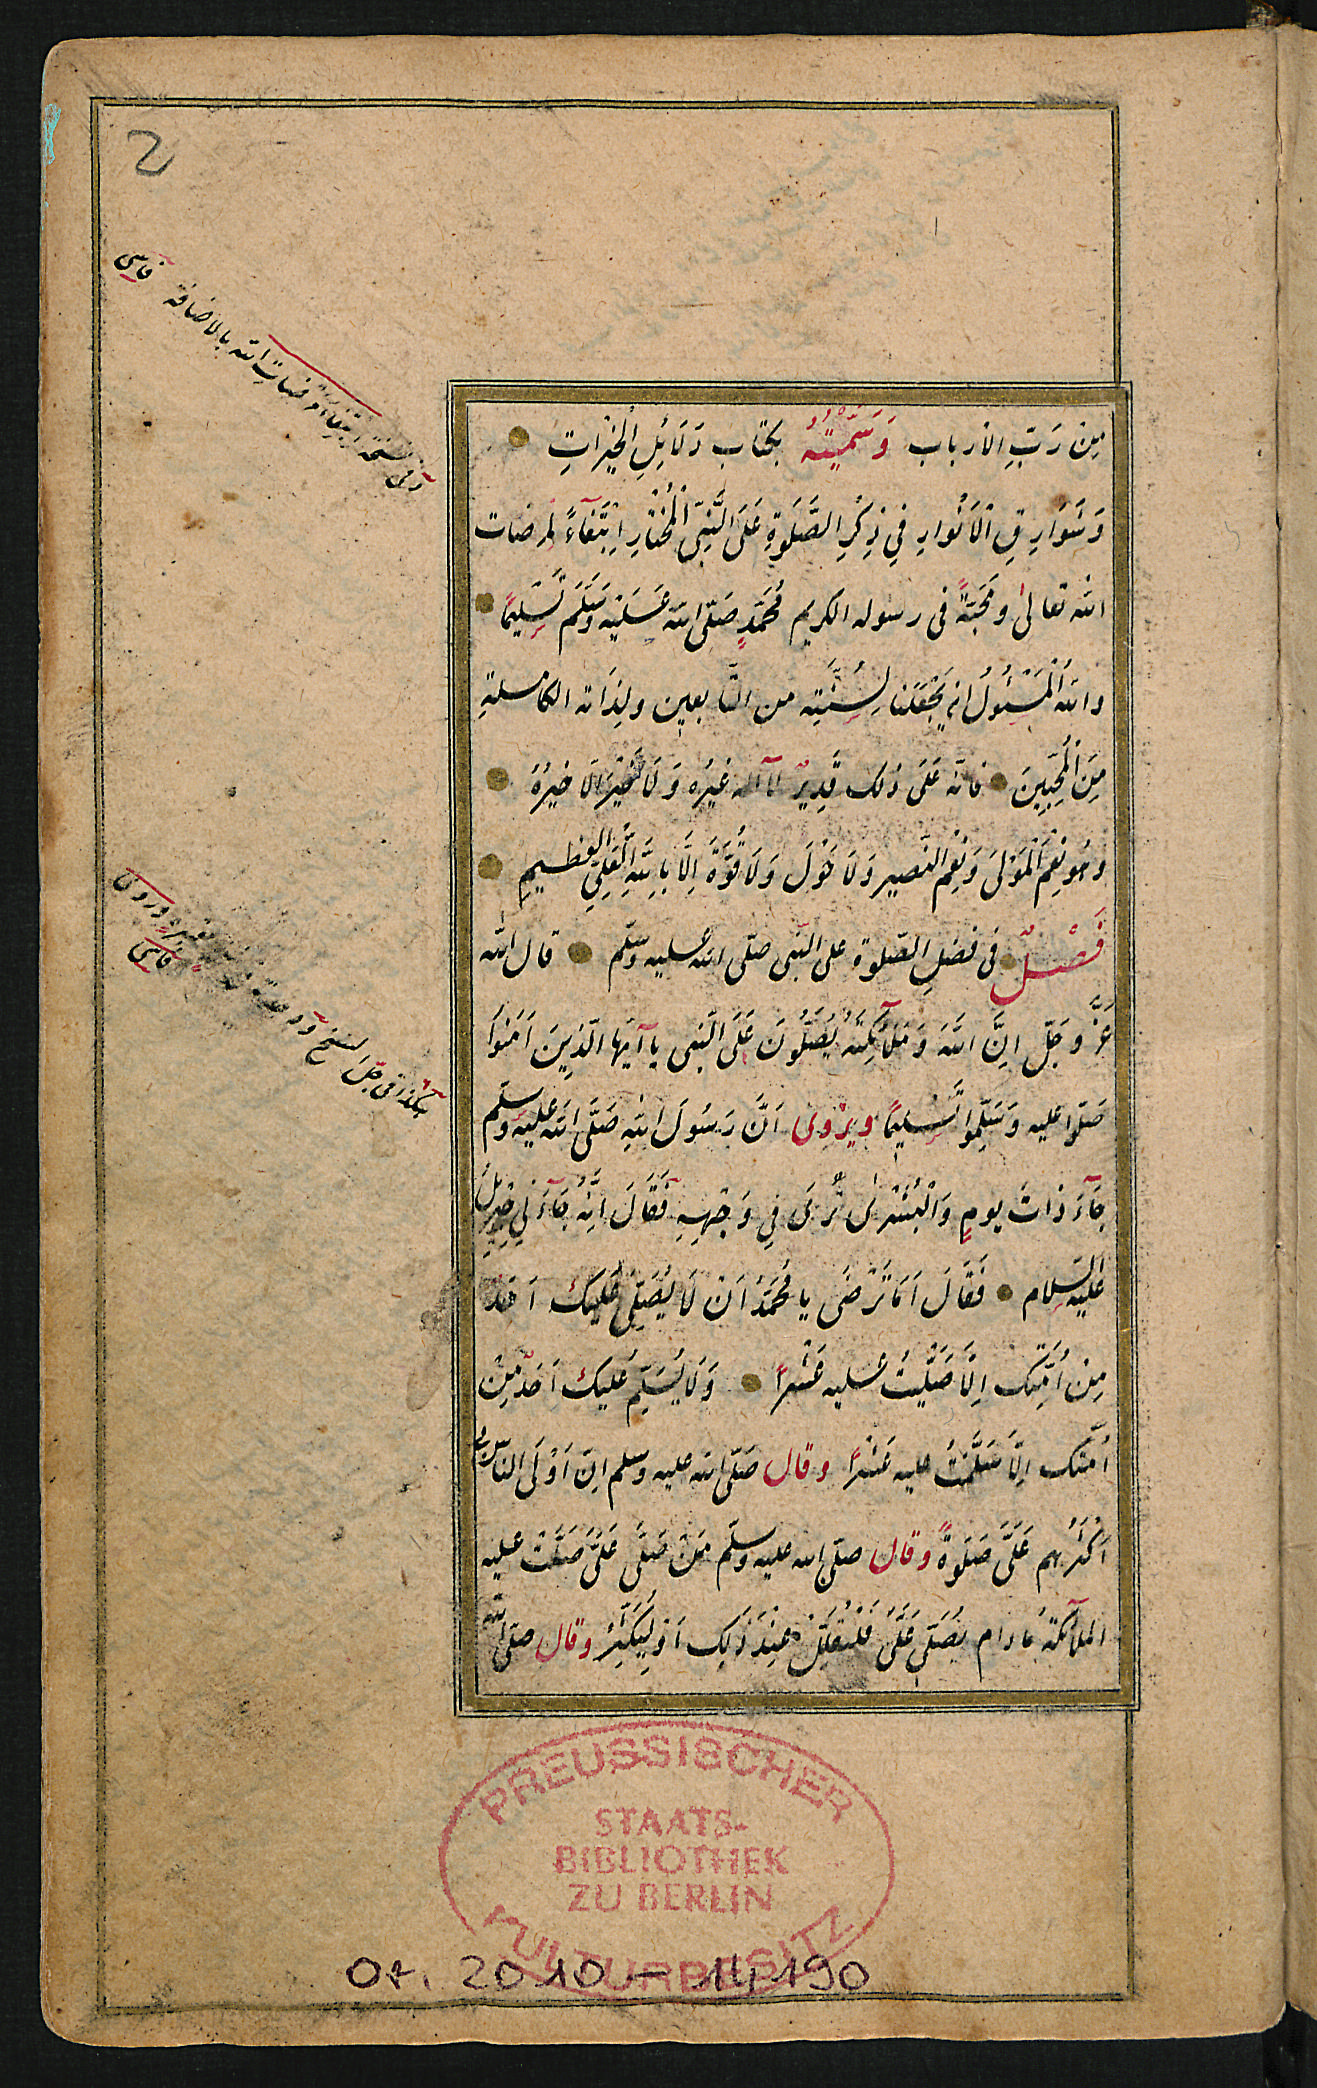 2
مِنْ رَبِّ الاَرباب وَسَمَّيْتُهُ بكتاب دَلَائِلِ الْخَيْرَاتِ
وَشَوَارِقِ الْاَنْوارِ فِي ذِكْرِ الصَّلَوةِ عَلَى النَّبِيِّ الْمُخْتَارِ اِبْتِغَآءً لمرضات
الله تعالى ومَحَبَّةً فى رسوله الكريم مُحَمَّدٍ صَلَّى الله عَلَيْهِ وَسَلَّمَ تَسْلِيمًا
والله الْمَسْئُولُ ان يَجْعَلَنا لِسُنَّتِه من التَّابعين ولِذَاته الكاملةِ
مِنَ الْمُحِبِّينَ فانّه عَلَى ذلك قَدِيرٌ لآاله غيْرُه وَلَا خَيْرَ اِلَّا خيْرُهُ
وهُو نِعْمَ الْمَوْلَى وَنِعْمَ النّصير وَلَا حَوْلَ وَلَا قُوَّةَ اِلَّا بِاللهِ الْعَلِيِّ العظيمِ
فَصْلٌ فى فضلِ الصّلوة على النّبى صلّى الله عليه وسلّم قال الله
عَزَّ وجَلّ اِنَّ اللهَ وَمَلَآئِكَتَهُ يُصَلُّونَ عَلَى النَّبى يآايّها الّذِينَ اَمَنُوا
صَلّوا عليه وَسَلِّمُوا تَسْليمًا ويرْوى اَنَّ رَسُولَ اللهِ صَلَّى الله عليه وسلّم
جَآءَ ذاتَ يومٍ وَالْبُشْرٰى تُرٰى فِي وَجْهِهِ فَقَالَ اِنَّهُ جَآءَنِي جِبْرِيلُ
عليْهِ السّلام فَقَالَ اَمَا تَرْضَى يا مُحَمَّدُ اَنْ لَا يُصَلِّيَ عَلَيك اَحَدٌ
مِنْ اُمَّتِك اِلَّا صَلَّيْتُ عليه عَشْرًا وَلَا يُسَلِّمَ عَليك اَحَدٌ مِنْ
اُمّتك اِلّا سَلَّمْتُ عليه عَشْرًا وقال صَلّى الله عليه وسلم اِنّ اَوْلَى النّاس بى
اَكْثَرُهم عَلَيَّ صَلَوةً وقال صلّى الله عليه وسلّم مَنْ صَلَّى عَلَيَّ صَلَّتْ عليه
الملآئكة مَا دام يُصَلّى عَلَيَّ فَلْيُقَلِّلْ عِنْدَ ذلِك اَوْ لِيُكَثِّرْ وقال صلّى الله
وفى نسخة ابتغاء مرضات الله بالاضافة فاسى
هكذا فى جلّ النسخ
فاسى
PREUSSISCHER
STAATS-
BIBLIOTHEK
ZU BERLIN
KULTURBESITZ
Or. 2010 - 14,190